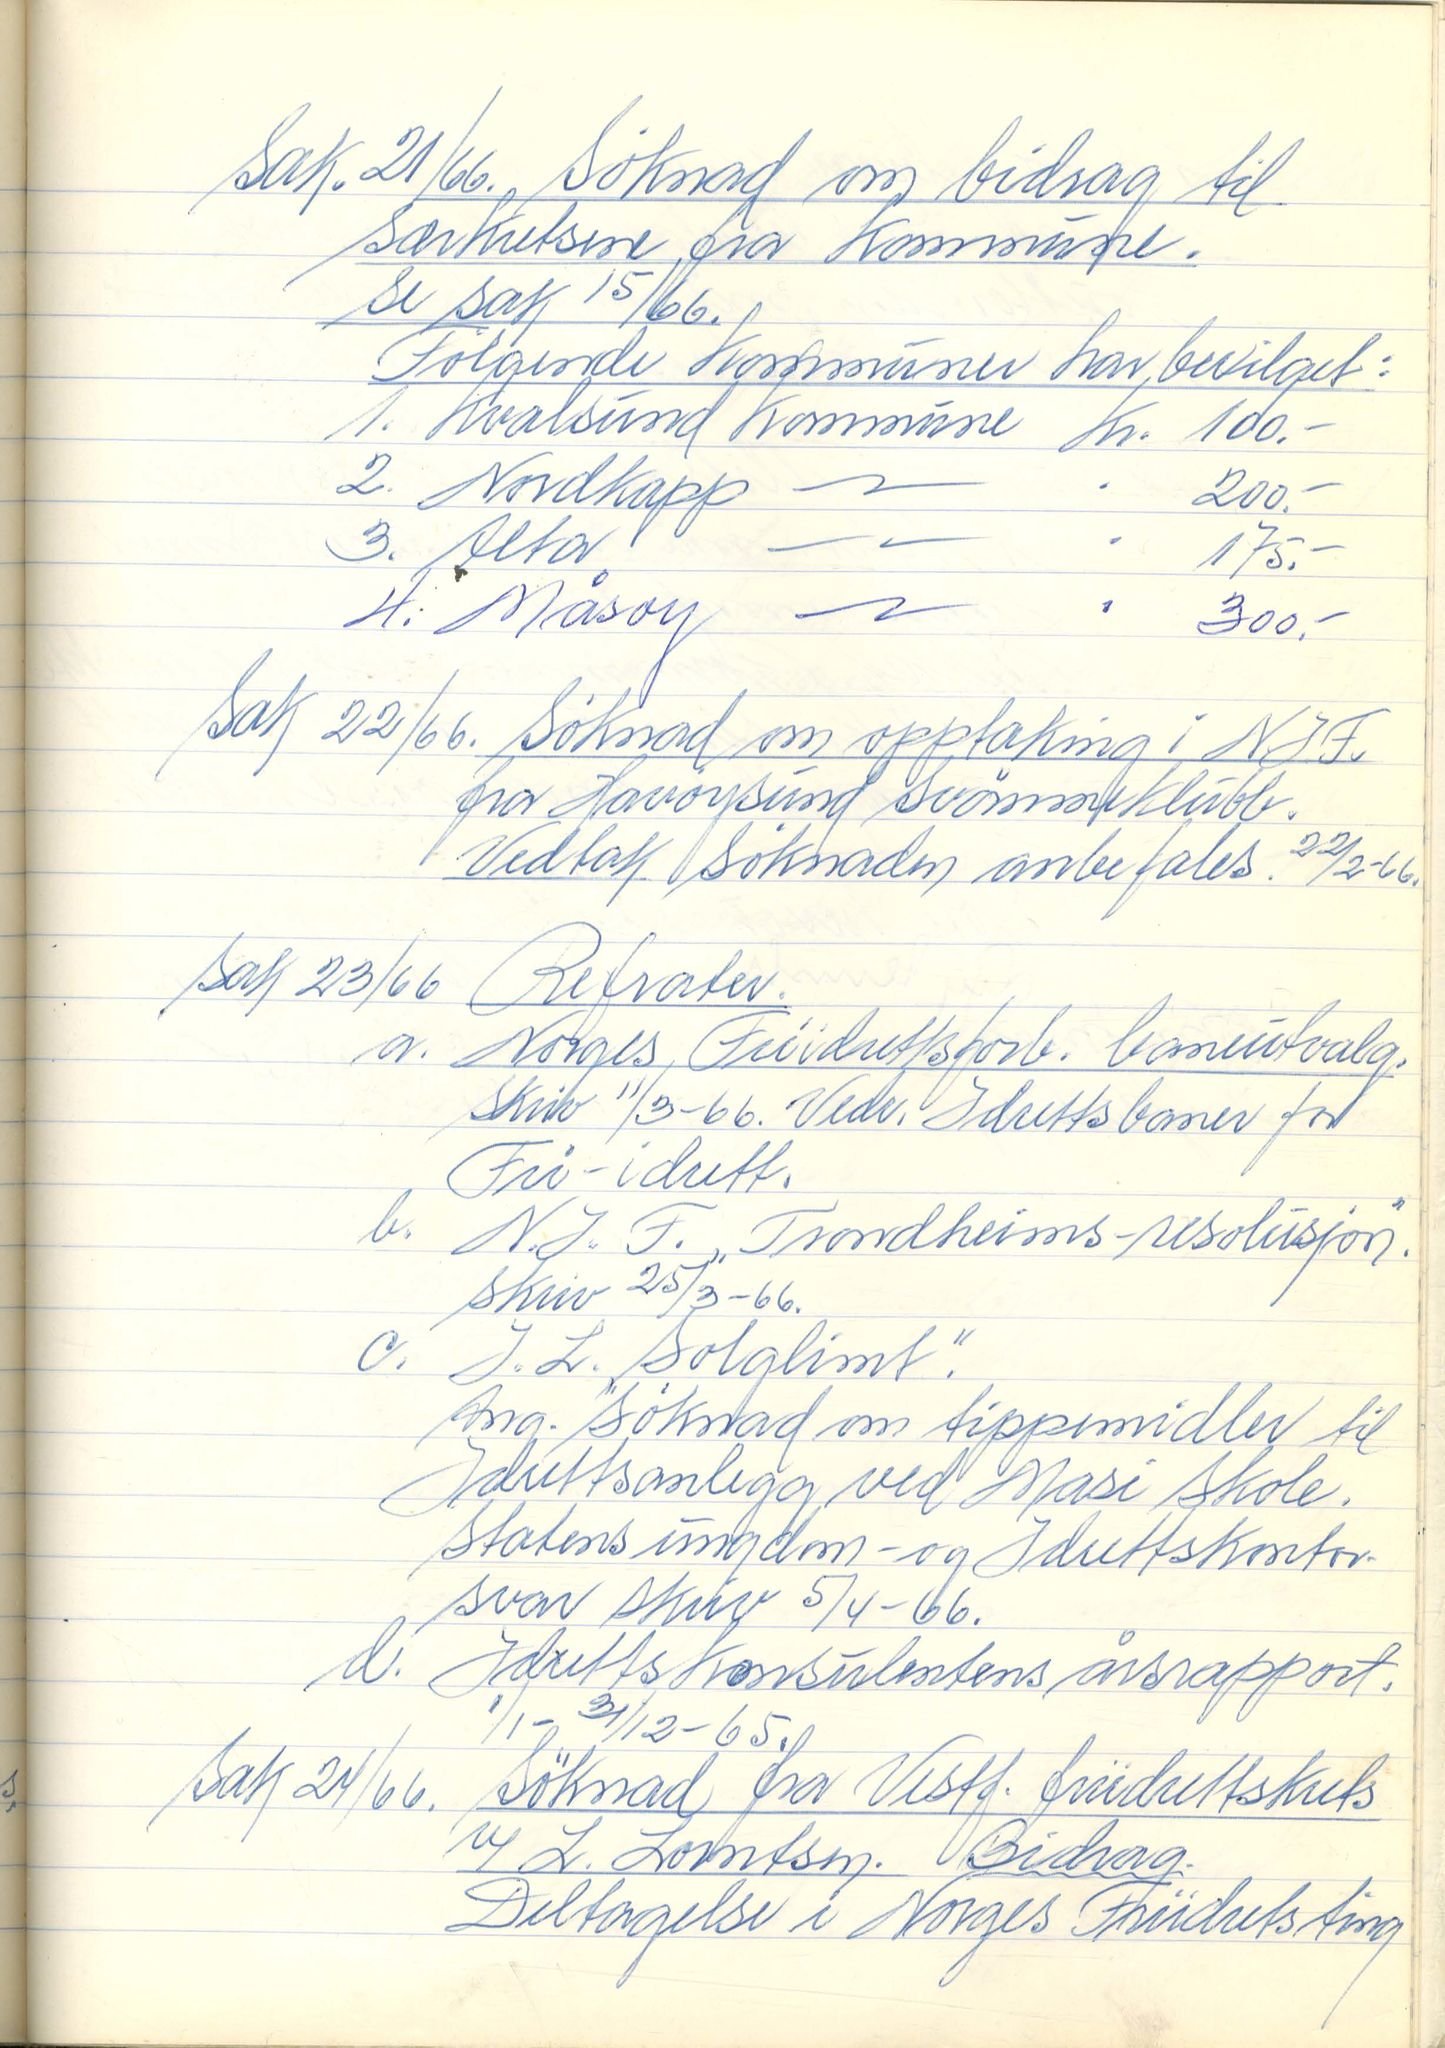 Sak. 21/66. Söknad om bidrag til
særkretsene fra Kommune.
Se sak 15/66.
Fölgende Kommuner har bevilget:
1. Kvalsund Kommune Kr. 100.-
2. Nordkapp —"— " 200.-
3. Alta —"— " 175.-
4. Måsöy —"— " 300.-
Sak 22/66. Söknad om opptaking i N.I.F.
fra Havöysund Svömmeklubb.
Vedtak Söknaden anbefales. 22/2-66.
Sak 23/66 Refrater.
a. Norges Friidrettsforb. baneutvalg.
skriv 11/3-66. Vedr. Idrettsbaner for
Fri-idrett.
b. N.I.F. „Trondheims-resolusjon".
skriv 25/3-66.
c. I.L. „Solglimt".
Ang. Söknad om tippemidler til
Idrettsanlegg ved Masi skole.
Statens ungdom- og Idrettskontor-
svar skriv 5/4-66.
d. Idrettskonsulentens årsrapport.
1/1- 31/12-65.
Sak 24/66. Söknad fra Vestf. friidrettskrets
v/ L. Lorntsen. Bidrag.
Deltagelse i Norges Friidrets ting